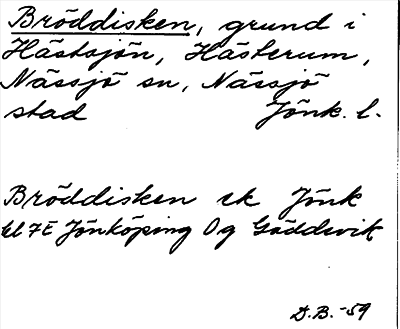 Bröddisken, grund i
Hästsjön, Hästerum,
Nässjö sn, Nässjö
stad Jönk. l.
Bröddisken ek Jönk
bl 7E Jönköping Og Gäddevik
D.B. -59